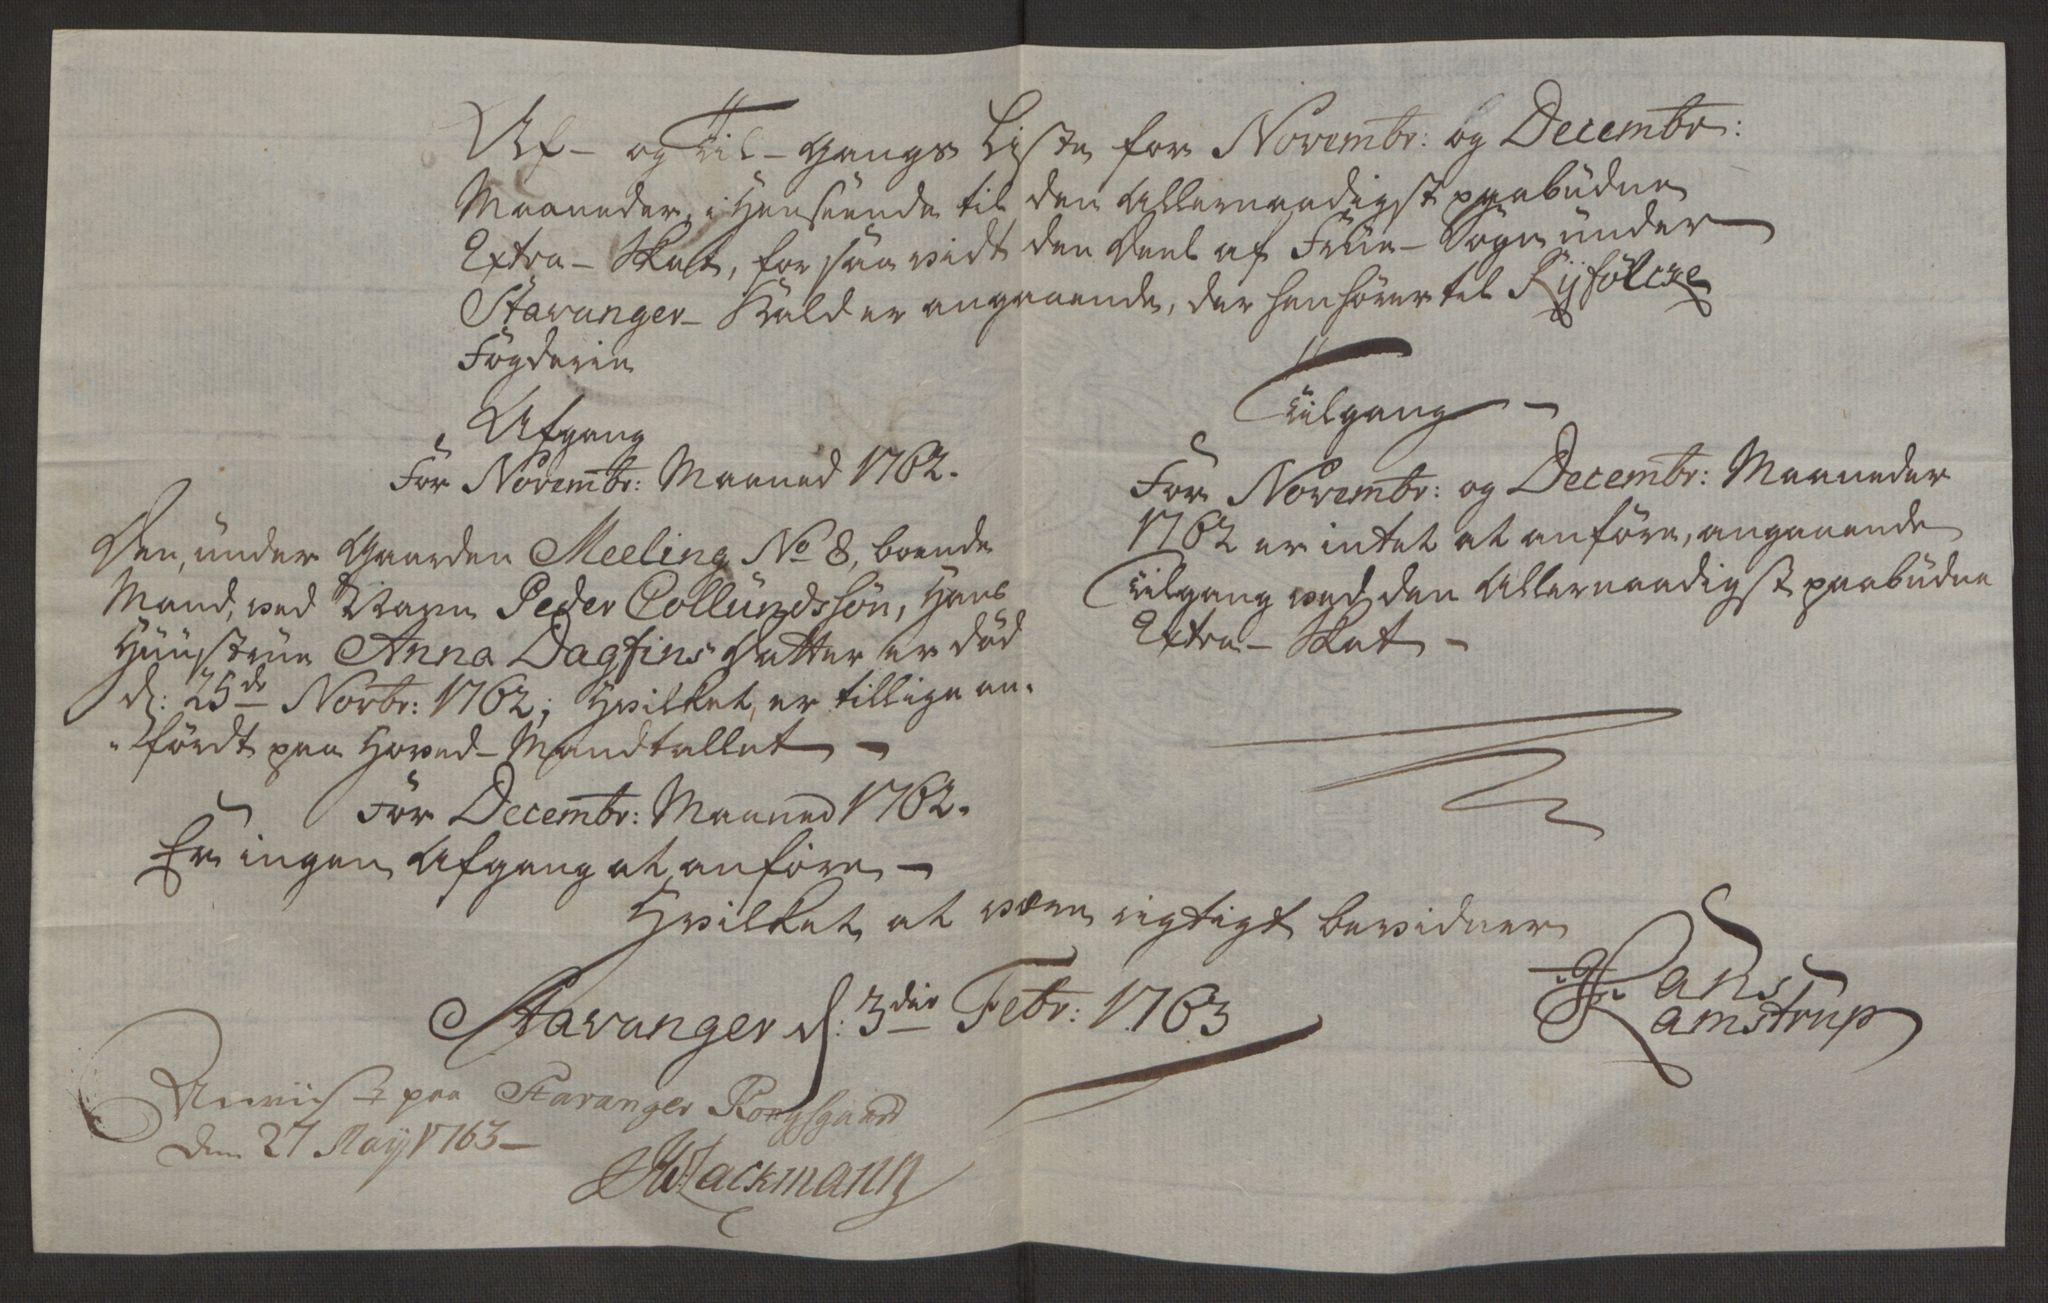 Af- og Til- Gangs Liste for Novembr: og Decembr:
Maaneder, i Henseende til den Allernaadigst paabüdne
Extra- Skat, for saa vidt den Deel af Früe- Sogn ünder
Stavanger- Kald er angaaende, der henhörer til Ryfölcke
Fogderie
Afgang
For Novembr: Maaned 1762.
Den, ünder Gaarden Meeling No 8, boende
Mand, ved Navn Peder Collündssön, Hans
Hüüstrüe Anna Dagfins Datter er död
d: 25de Novbr: 1762; Hvilket, er tillige an-
-fördt paa Hoved-Mandtallet -
For Decembr: Maaned 1762.
Er ingen Afgang at anföre -
Tilgang -
For Novembr: og Decembr: Maaneder
1762 er intet at anföre, angaaende
Tilgang ved den Allernaadigst paabüdne
Extra- Skat -
Hvilket at være rigtigt bevidner
Stavanger d: 3die Febr: 1763
Hans
Ramstrup
paa Stavanger Kongsgaard
den 27 Maÿ 1763-
Hackmann